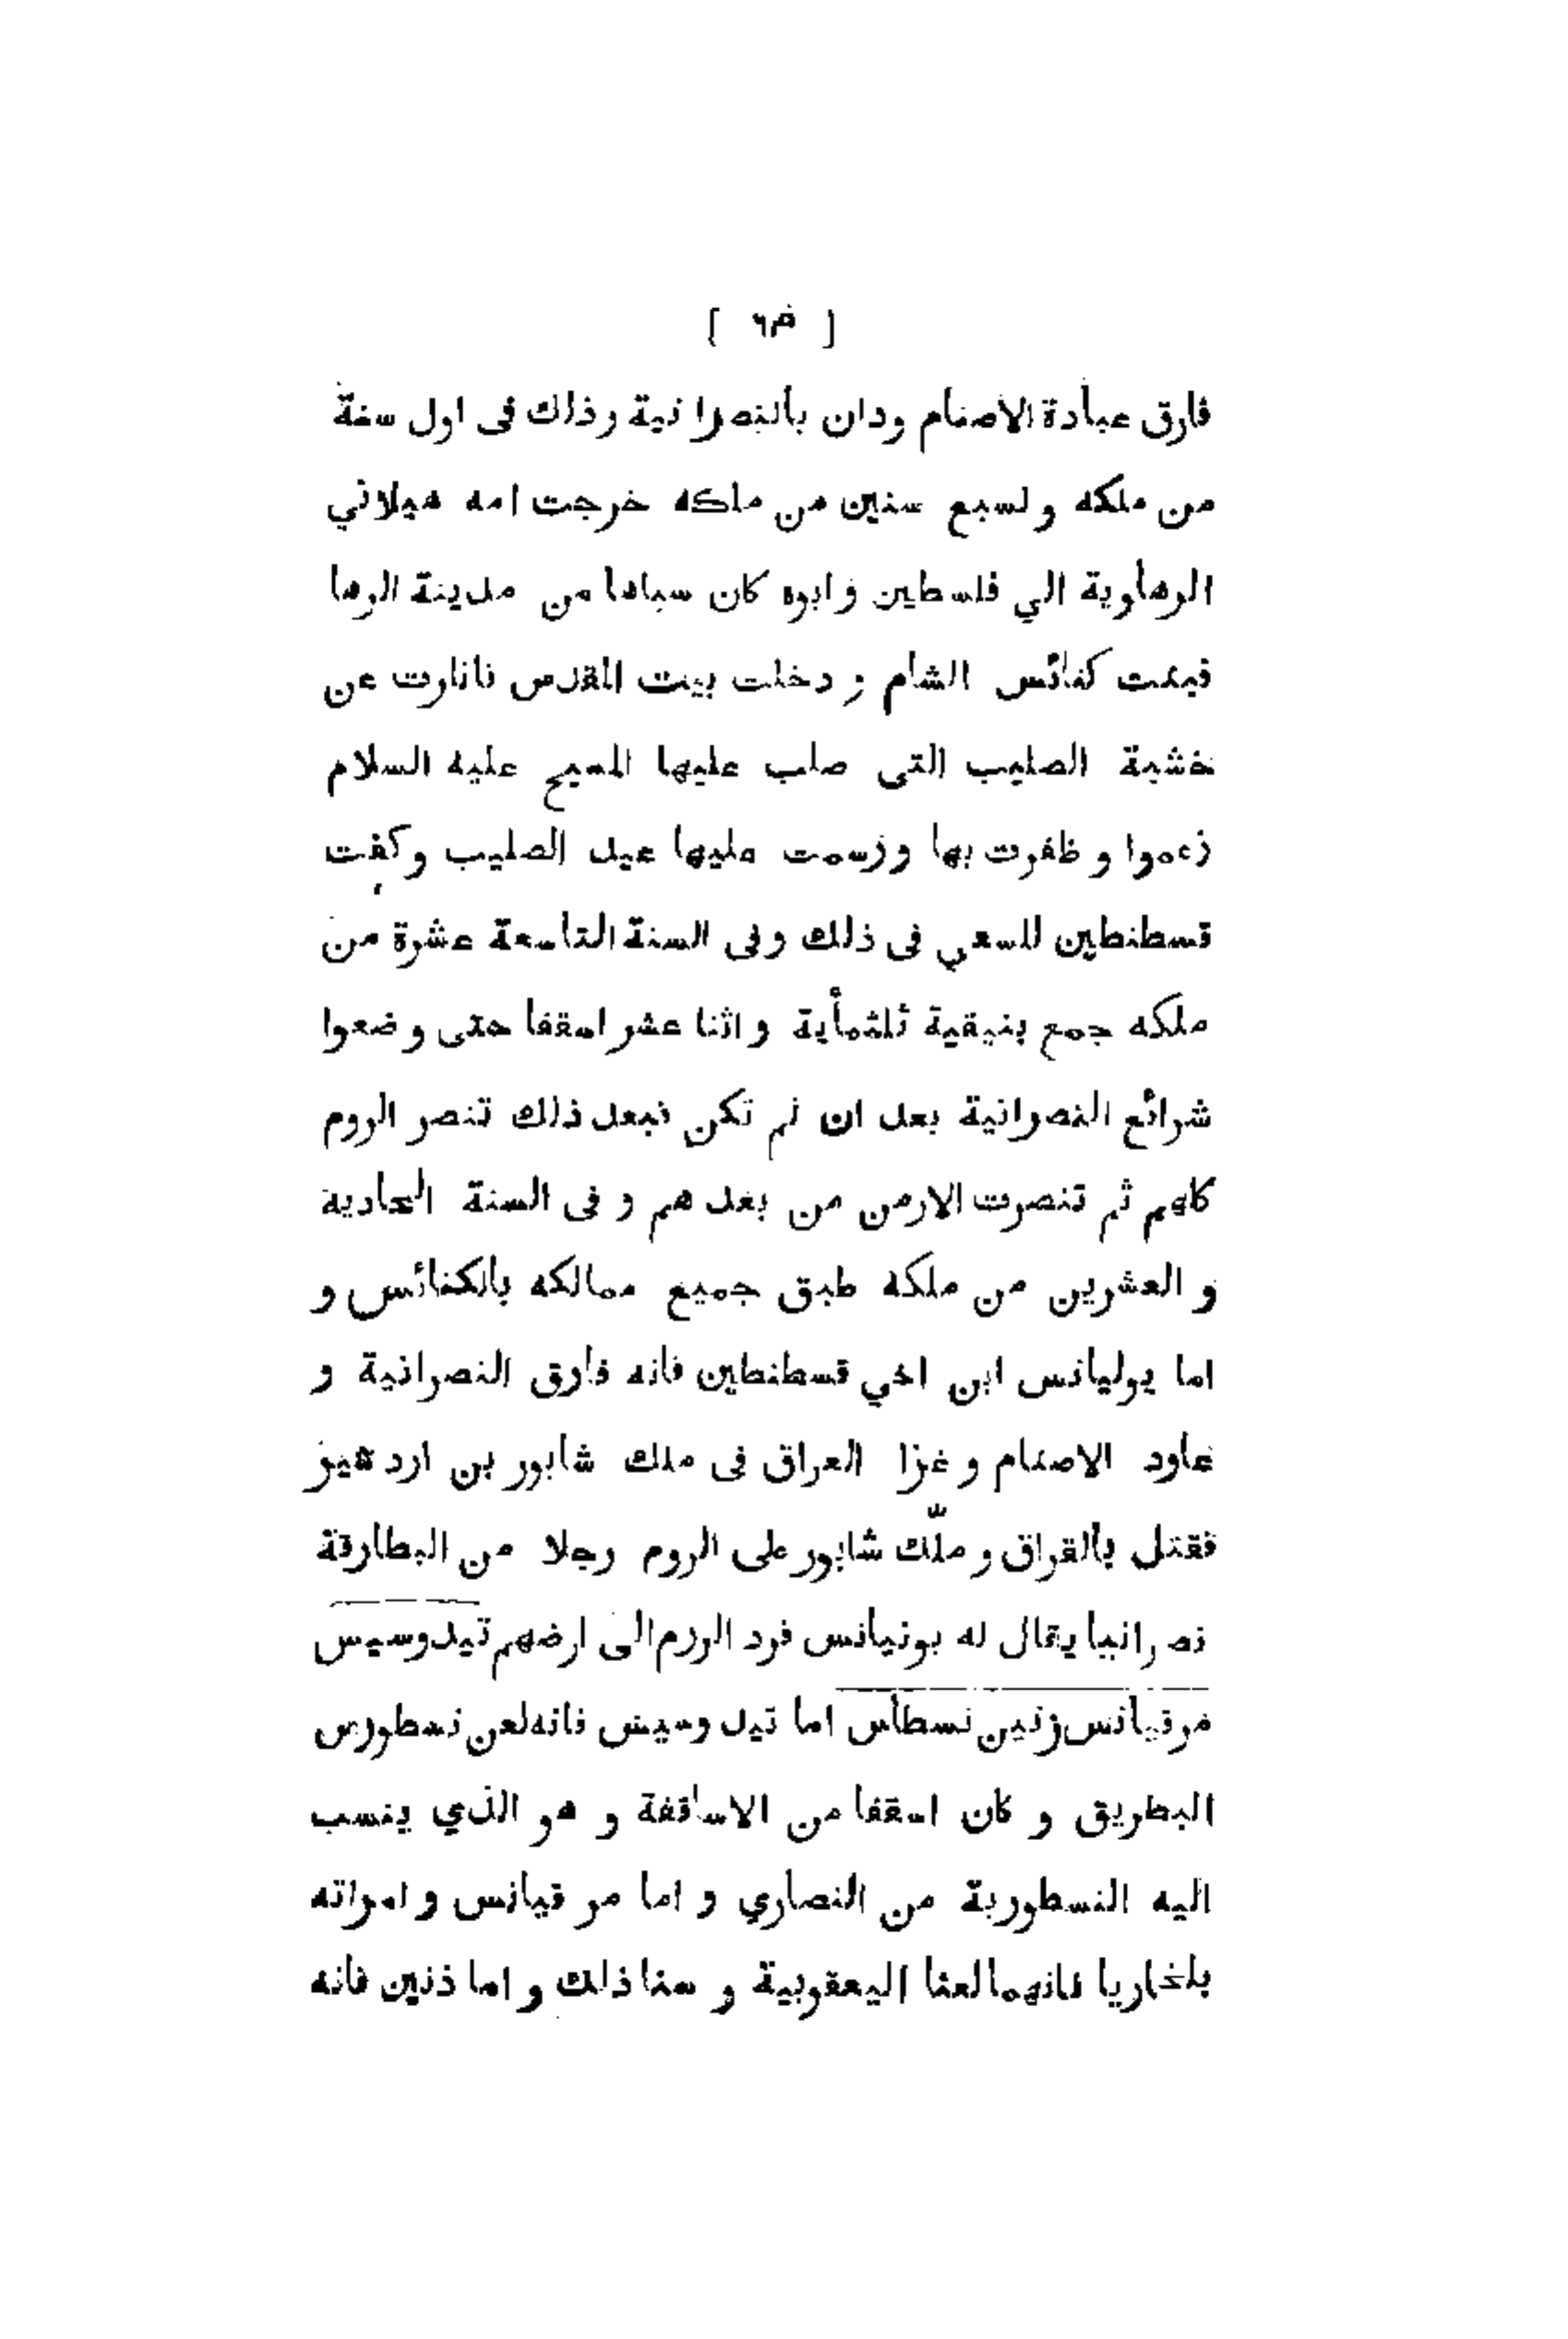 [ ٦٥ ]
فارق عبادة الاصنام ودان بالنصرانية وذلك فى اول سنة
من ملكه و لسبع سنين من ملكه خرجت امه هيلاني
الرهاوية الي فلسطين و ابوه كان سباها من مدينة الرها
فبنت كنائس الشام و دخلت بيت المقدس فانارت عن
خشبة الصليب التى صلب عليها المسيح عليه السلام
زعموا و ظفرت بها ورسمت عليها عيد الصليب وكفت
قسطنطين للسعي فى ذلك وفى السنة التاسعة عشرة من
ملكه جمع بنيقية ثلثمأية و اثنا عشر اسقفا حتى وضعوا
شرائع النصرانية بعد ان لم تكن فبعد ذلك تنصر الروم
كلهم ثم تنصرت الارمن من بعد هم و فى السنة الحادية
و العشرين من ملكه طبق جميع ممالكه بالكنائس و
اما يوليانس ابن اخي قسطنطين فانه فارق النصرانية و
عاود الاصنام و غزا العراق فى ملك شابور بن ارد شير
فقتل بالعراق و ملّك شابور على الروم رجلا من البطارقة
نصرانيا يقال له بونيانس فرد الروم الى ارضهم تيدوسيس
مرقيانس زنين نسطاس اما تيد وسيس فانه لعن نسطورس
البطريق و كان اسقفا من الاساقفة و هو الذي ينسب
اليه النسطورية من النصاري و اما مر قيانس و امراته
بلخاريا فانهما لعنا اليعقوبية و سنا ذلك و اما ذنين فانه